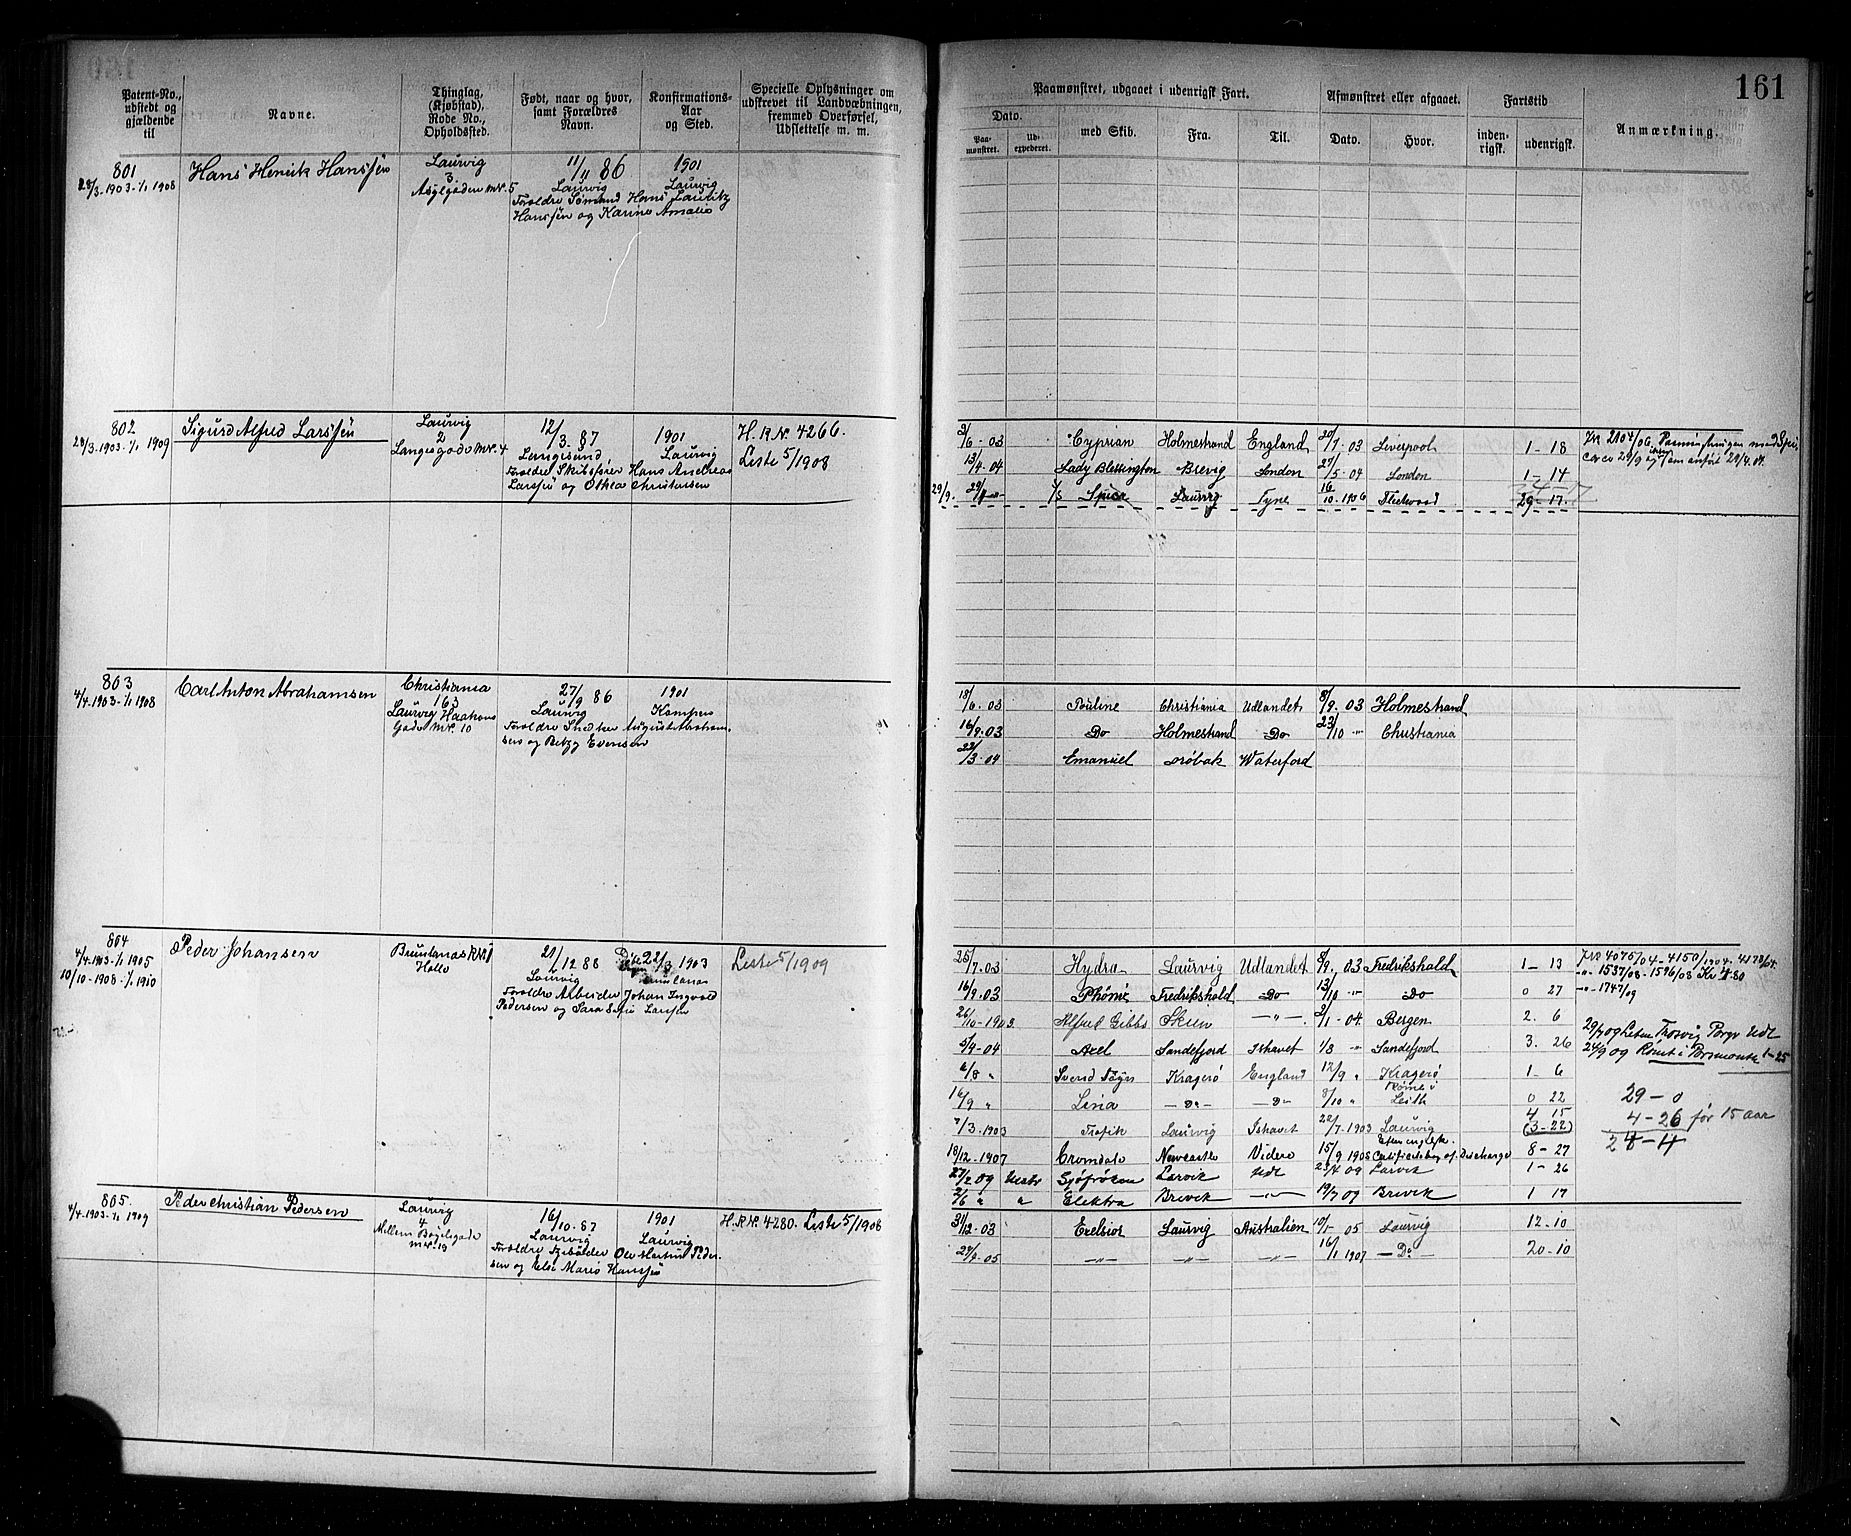 161
Patent-No., udstedt og gjældende til
Navne.
Thinglag, (Kjøbstad), Rode No., Opholdssted.
Født, naar og hvor, samt Forældres Navn.
Konfirmations-Aar og Sted.
Specielle Oplysninger om udskrevet til Landvæbningen, fremmed Overførsel, Udslettelse m. m.
Paamønstret, udgaaet i udenrigsk Fart.
Dato.
Paa-mønstret.
Ud-expederet.
med Skib.
Fra.
Til.
Afmønstret eller afgaaet.
Dato.
Hvor.
Fartstid
inden-rigsk.
udenrigsk.
Anmærkning.
801
28/3-1903-1/1 1908
Hans Henrik Hanssen
Laurvig
3.
Asylgaden Mr. 5
11/4 86
Laurvig
1901
Laurvig
Forældre Sømand Hans Lauritz
Hanssen og Karine Amalie
802
28/3-1903-1/1 1909
Sigurd Alfred Larssen
Laurvig
2
Langesgade Mr. 4
12/3-87
Langesund
1901
Laurvig
Forældre Skibsfører Hans Andreas
Larssen og Othea Christensen
H.R.N. 4266.
Leste 5/1908
3/6-03 Cyprian Holmestrand England 20/7-03 Liverpool 1-18
13/4-04 Lady Blessington Brevig London 21/5-04 London 1-14
29/9. Laurvig Tyne 16/10-1906 Fleetwood 29-17.
803
4/4-1903-1/1 1908
Carl Anton Abrahamsen
Christiania
163
Laurvig Haakons
Gade Mr. 10
27/9 86
Laurvig
1901
Kampen
Forældre Snedker August Abraham-
sen og Betzy Evensen
18/6-03 Pauline Christiania Udlandet 8/9.03 Holmestrand
16/9.03 Do Holmestrand Do 23/10 -"- Christiania
22/3-04 Emanuel Drøbak Waterford
804
4/4-1903-1/1 1905
10/10-1908-1/1 1910
Peder Johansen
Brunlanes
21/12 88
Laurvig
22/3 1903
Brunlanes
Forældre Arbeider Johan Ingvald
Pedersen og Sara Sofie Larsen
Leste 5/1909
25/7.03 Hydra Laurvig Udlandet 8/9.03 Fredrikshald 1-13
16/9.03 Phönix Fredrikshald Do 13/10 -"- Do 0 27
26/10-1903. Alfred Gibbs Skien -"-. 2/1-04. Bergen 2. 6
5/4-04 Axel Sandefjord Ishavet 1/8 -"- Sandefjord 3. 26
6/8 " Svend Føyn Kragerø England 12/9 " Kragerø 1-6
16/9 " Liria -Do- -Do- 8/10 " Rømt i Leith 0 22
4 15
1/3-1903 Trafik Laurvig Ishavet 22/7-1903 Laurvig (3-22)
18/12-1907 Cromdale Newcastle 15/9 1908 Efter engelsk Certificate of Discharge 8-27
27/2 09 Sjøfröken Larvik Udl 23/4 09 Larvik 1-26
2/6 " " Elektra Brevik -"- 19/7 09 Brevik 1 17
JNo 4075/04-4150/1904-4178/04.
-"- 1537/08-1596/08 Kr 4.80
-"- 1747/09
24/9 09 Rømt i Portsmouth 1-25
29-0
4-26 før 15 aar
24-4
805.
4/4-1903-1/1 1909
Peder Christian Pedersen
Laurvig
4
Mellem Bøgelsgade
Mr. 19
16/10-87
Laurvig
1901
Laurvig
Forældre Ole Martin Peder-
sen og Else Marie Hanssen
H.R.N. 4280. Leste 5/1908
31/12-03 Excelsior Laurvig Australien 05 Laurvig 12-10
-05 -"- -"- -"- 16/1 1907 -Do- 20-10